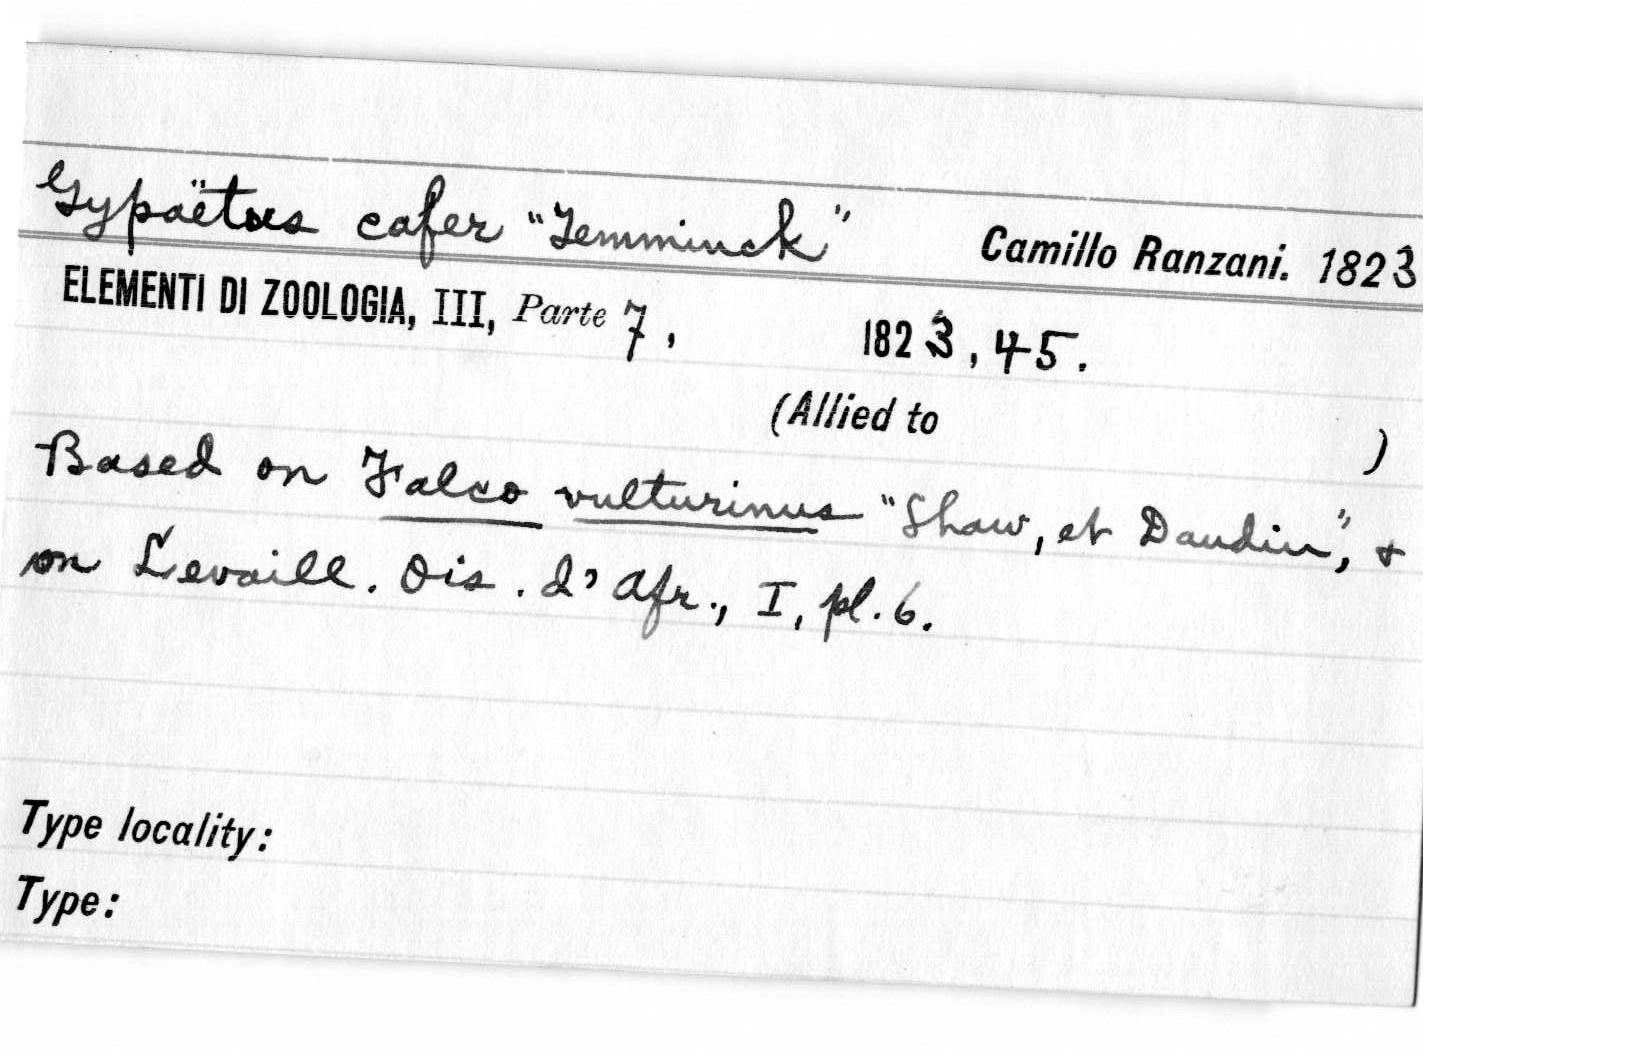 Gypaëtus cafer "Temminck" Camillo Ranzani. 1823
ELEMENTI DI ZOOLOGIA, III, Parte 7, 1823, 45.
(Allied to )
Based on Falco vulturinus "Shaw, et Daudin", &
on Levaill. Ois. d'Afr., I, pl. 6.
Type locality:
Type: